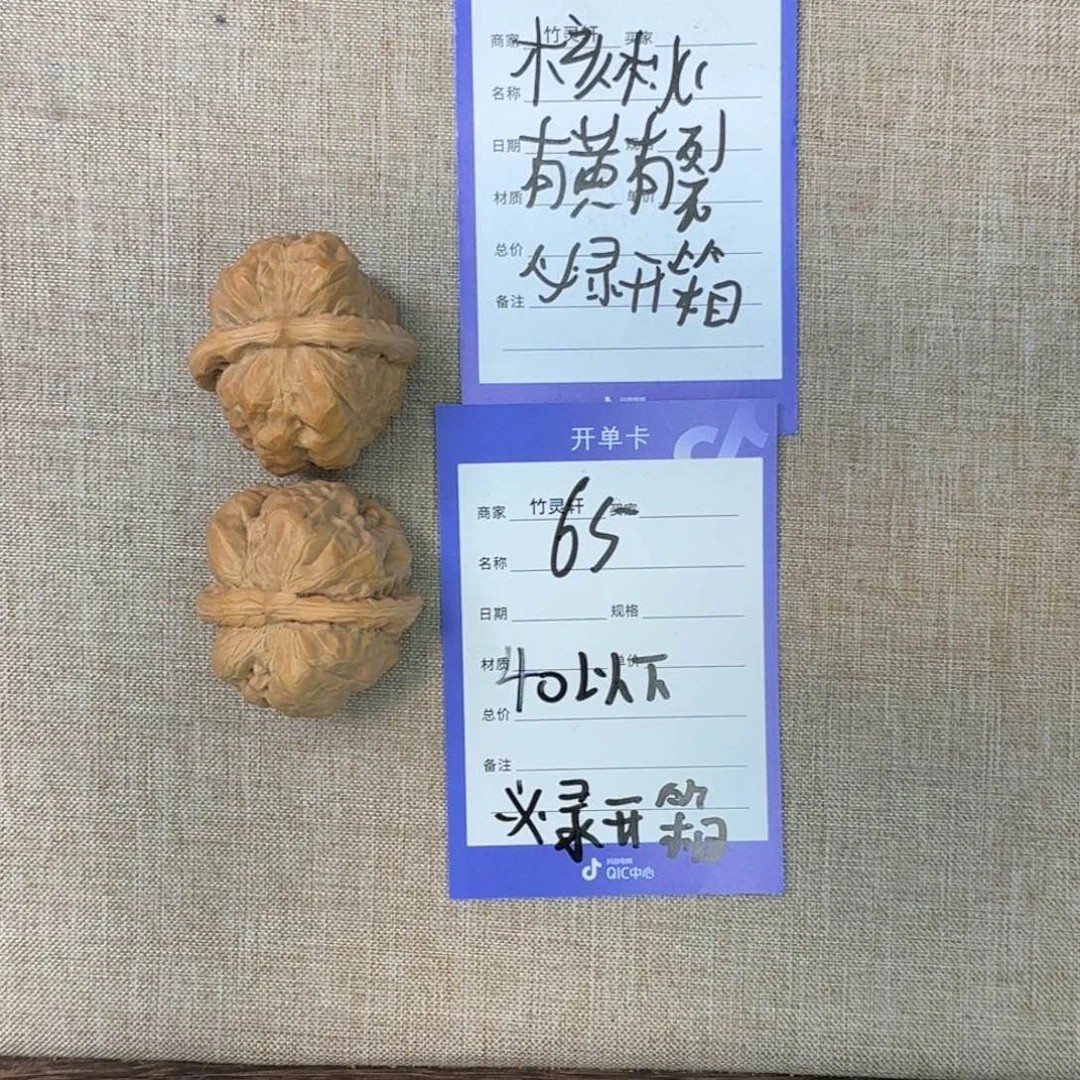 商家 竹灵轩 买家
核桃
名称
日期 规格
有黄有裂
材质 单价
总价
必录开箱
备注
抖音电商
开单卡
商家 竹灵轩 买家
65
名称
日期 规格
材质 单价
40以下
总价
备注
必录开箱
抖音电商
QIC中心